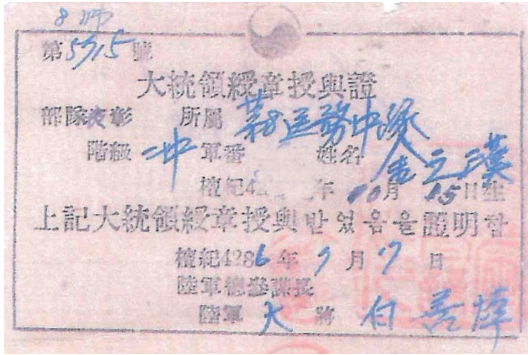 8師
第5715號
大統領綬章授與證
部隊表彰 所屬 第8医務中隊
階級 二中 軍番 姓名
檀紀42 年 10月 15日生
上記大統領綬章授與받었음을證明함
檀紀4286年 9月 7日
陸軍總參謀長
陸軍 大 將 白善燁